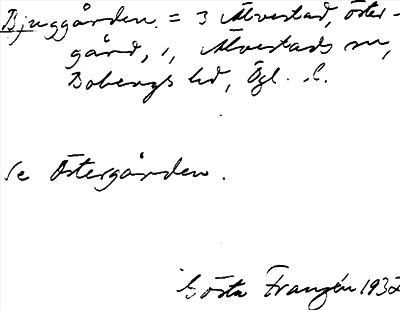 Bjuggården. = 3 Älvestad, Öster-
gård, 1, Älvestads sn,
Bobergs hd, Ögl.
Se Östergården.
Gösta Franzén 1932